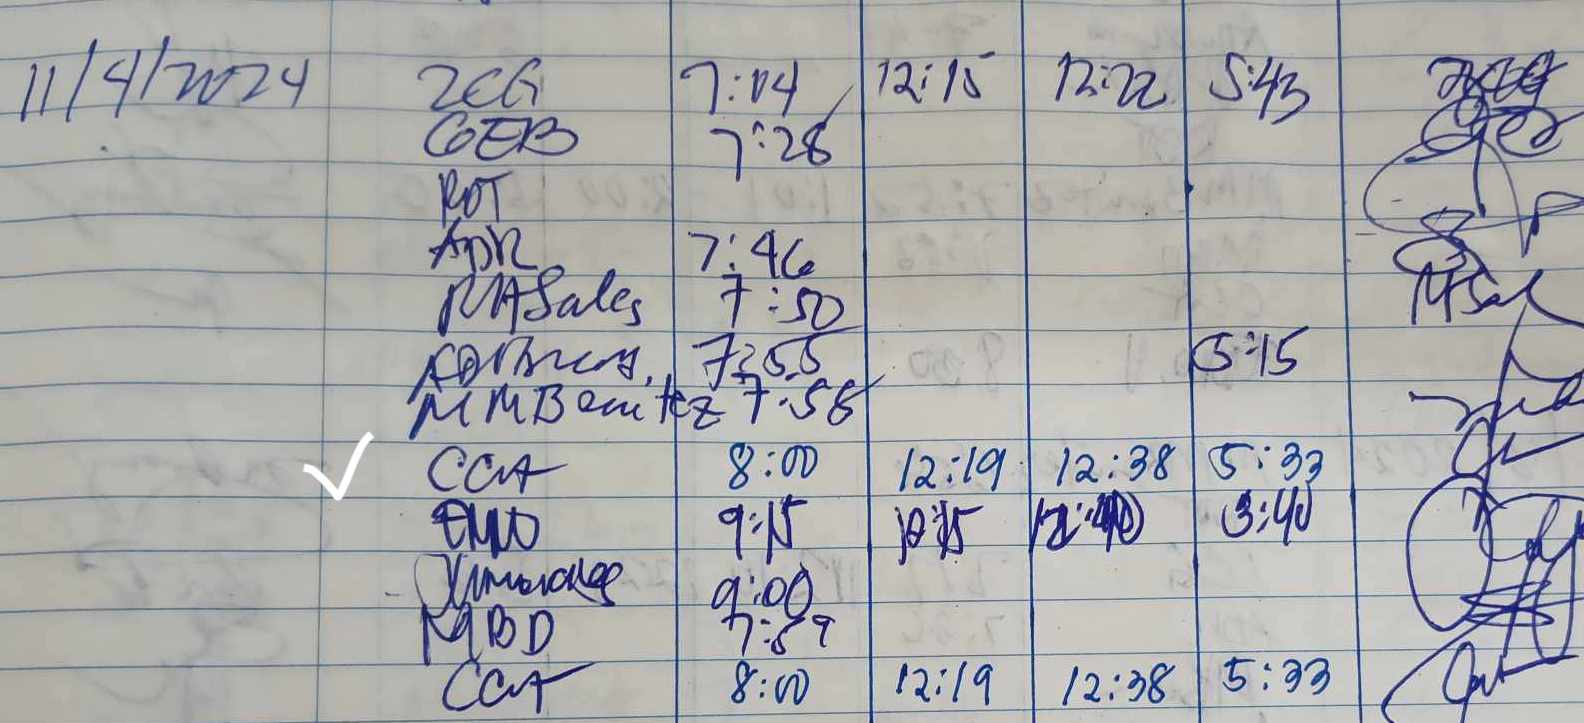 11/4/2024 ZCG 7:04 12:15 12:22 5:43
GEB 7:28
ROT
ADR 7:46
MASales 7:50
7:55 5:15
MMBenitez 7:58
CCA 8:00 12:19 12:38 5:33
9:15 12:15 12:40 3:40
9:00
MBD 7:59
CCA 8:00 12:19 12:38 5:33